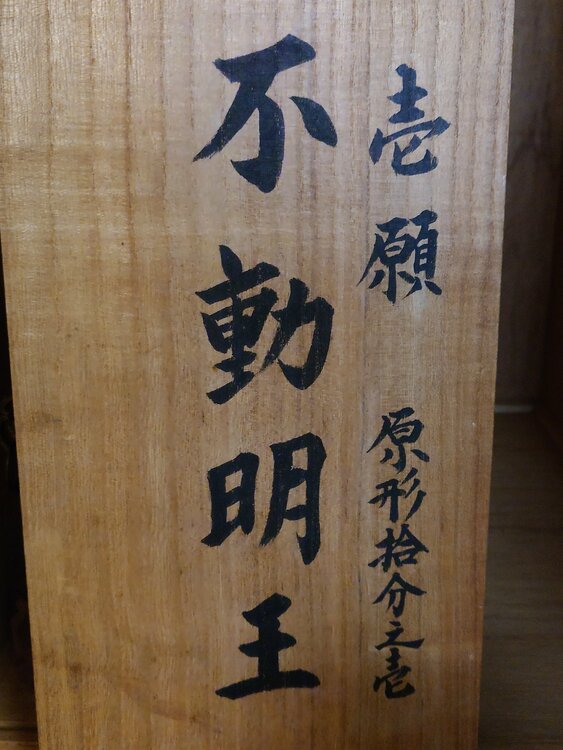 壱願 原形拾分之壱
不動明王